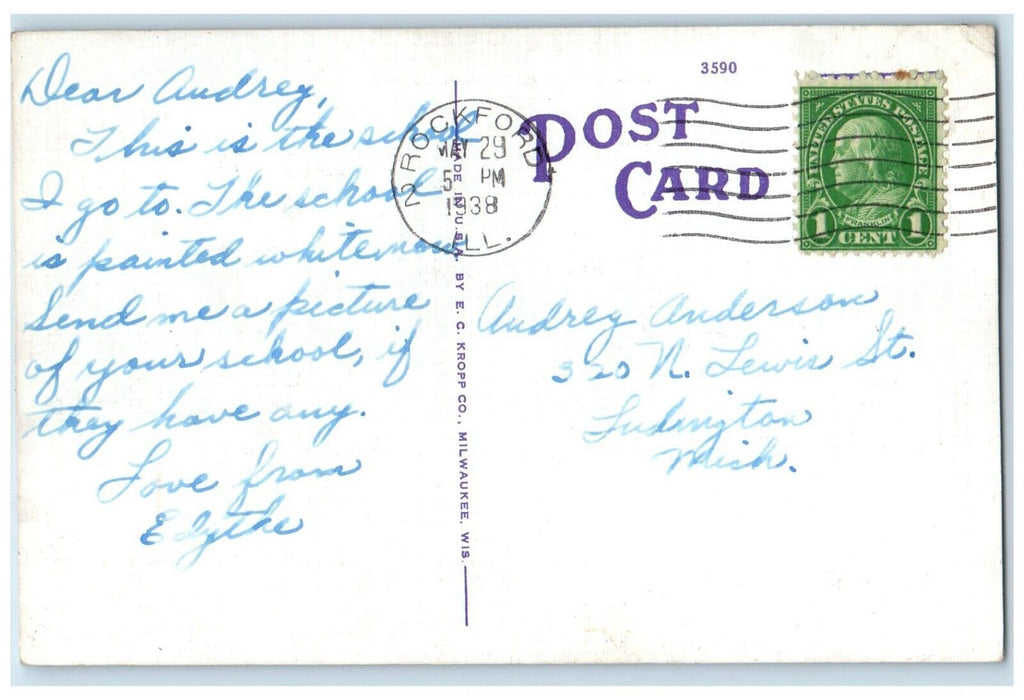 Dear Audrey,
This is the school
I go to. The school
is painted white now
Send me a picture
of your school, if
they have any.
Love from
Edythe
MADE IN U.S.A. BY E. C. KROPP CO., MILWAUKEE, WIS.
3590
POST
CARD
ROCKFORD
MAY 29
5 PM
1938
ILL.
UNITED STATES POSTAGE
FRANKLIN
1 CENT 1
Audrey Anderson
320 N. Lewis St.
Ludington
Mich.